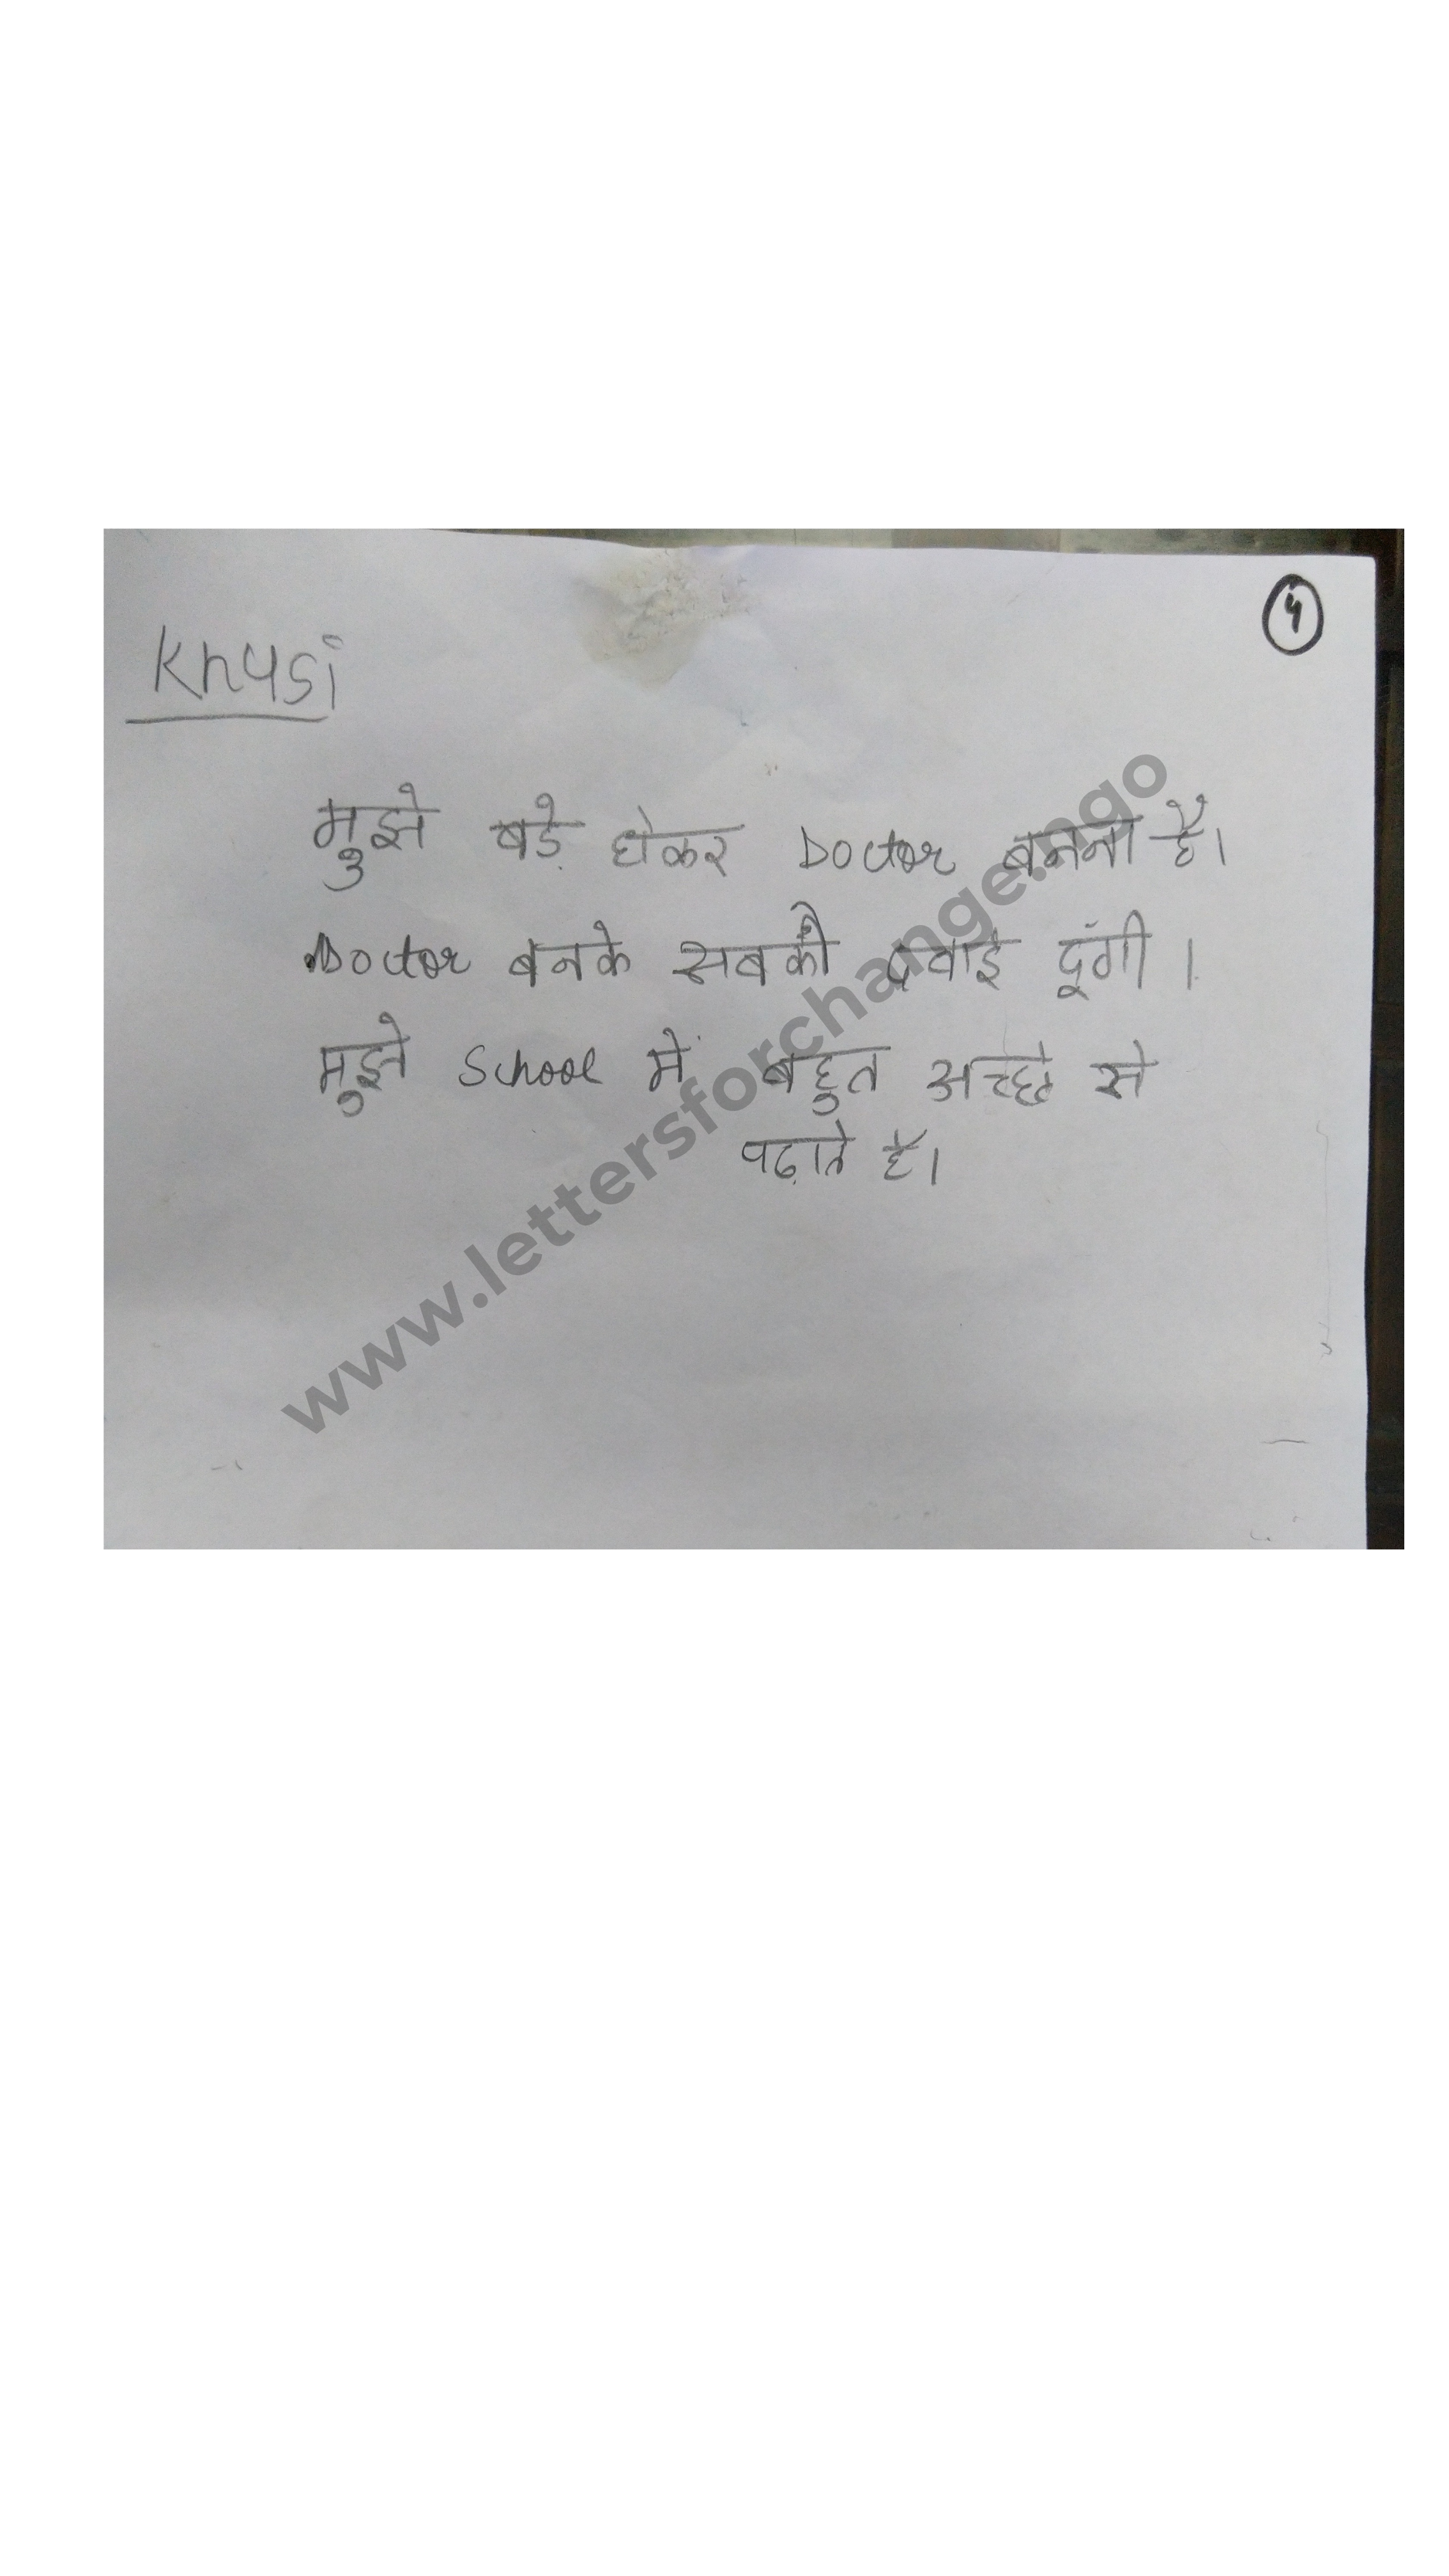 ५
Khusi
मुझे बड़े होकर Doctor बनना है।
Doctor बनके सबको दवाई दूंगी ।
मुझे School में बहुत अच्छे से
पढ़ाते है।
www.lettersforchange.ngo